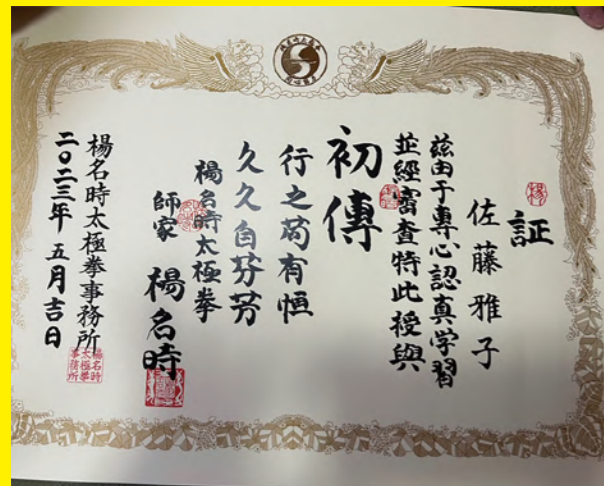 証
佐藤雅子
茲由于專心認真学習
並經審查特此授與
初傳
行之苟有恒
久久自芬芳
楊名時太極拳
師家 楊名時
楊名時太極拳事務所
二〇二三年 五月吉日
楊名時
太極拳
事務所